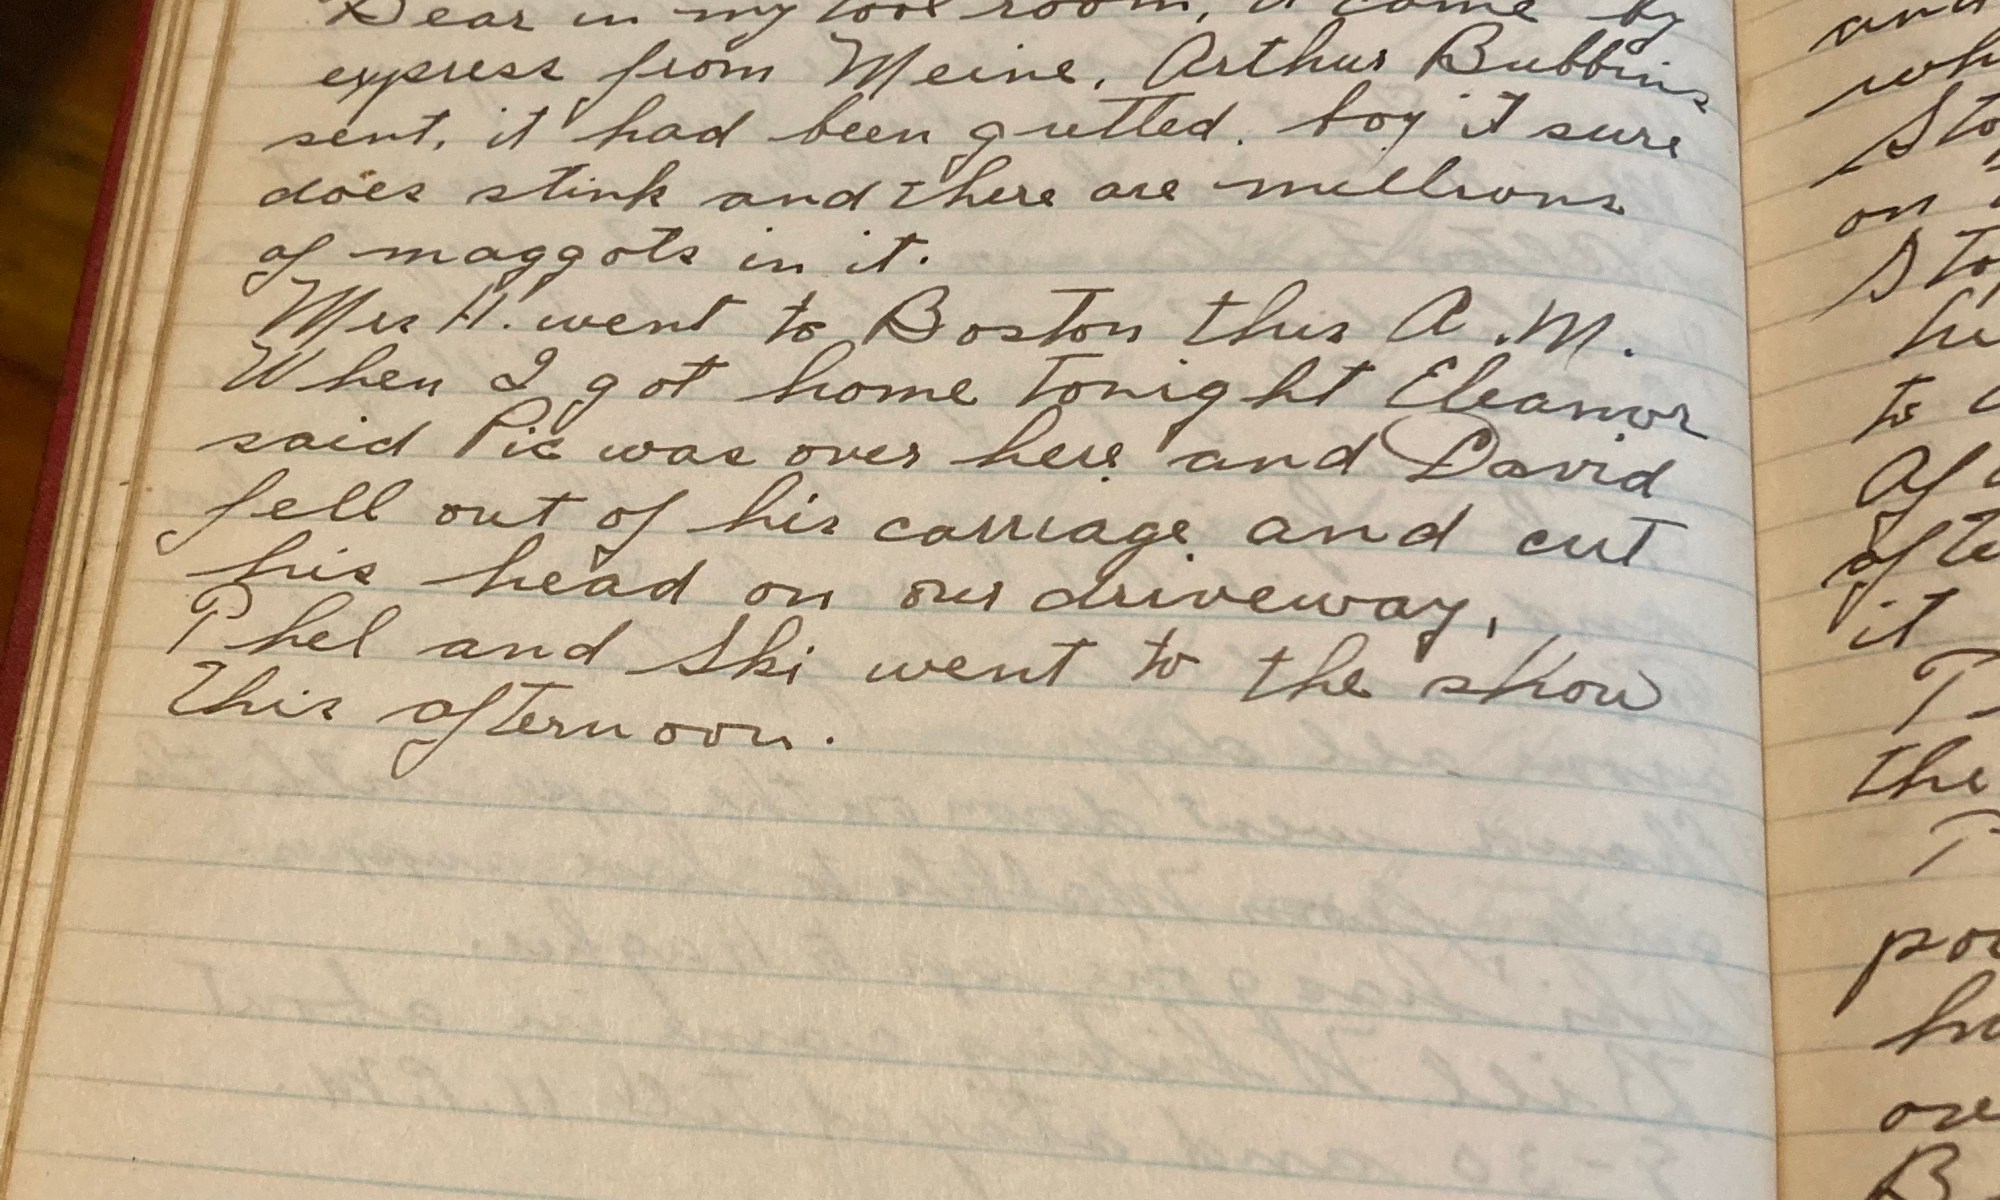 Bear in my tool room, it came by
express from Meine, Arthur Bubbins
sent, it had been gutted. boy it sure
does stink and there are millions
of maggots in it.
Mrs H. went to Boston this A.M.
When I got home tonight Eleanor
said Pic was over here and David
fell out of his carriage and cut
his head on our driveway,
Phel and Ski went to the show
this afternoon.
and
on
to
it
the